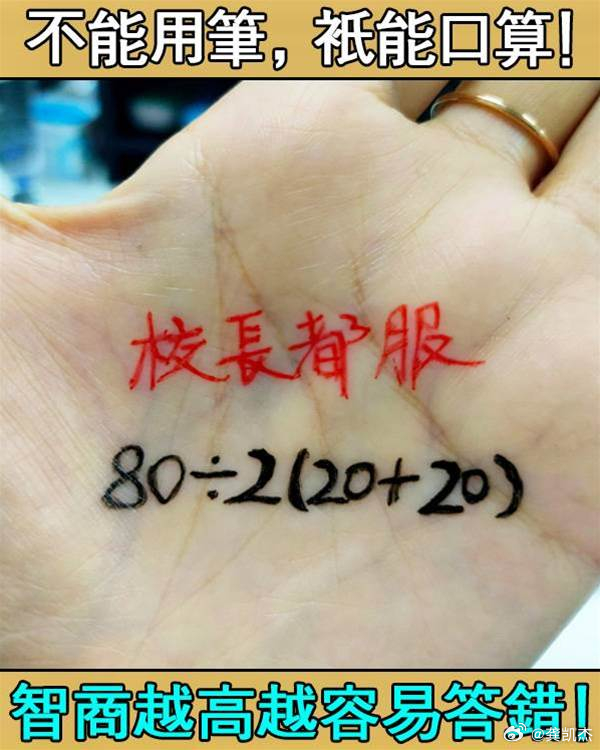 不能用筆，祇能口算！
校長都服
80÷2(20+20)
智商越高越容易答錯！
@龔凱杰